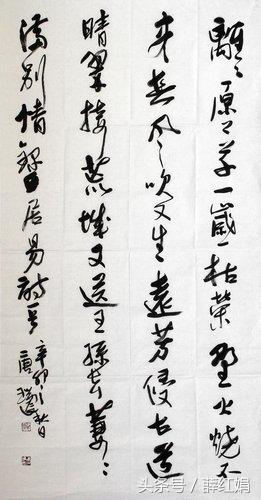 離〻原上草一歲一枯榮野火燒不
尽春風吹又生遠芳侵古道
晴翠接荒城又送王孫去萋〻
滿別情 白居易詩 辛卯秋日
唐
头条号 / 薛红娟